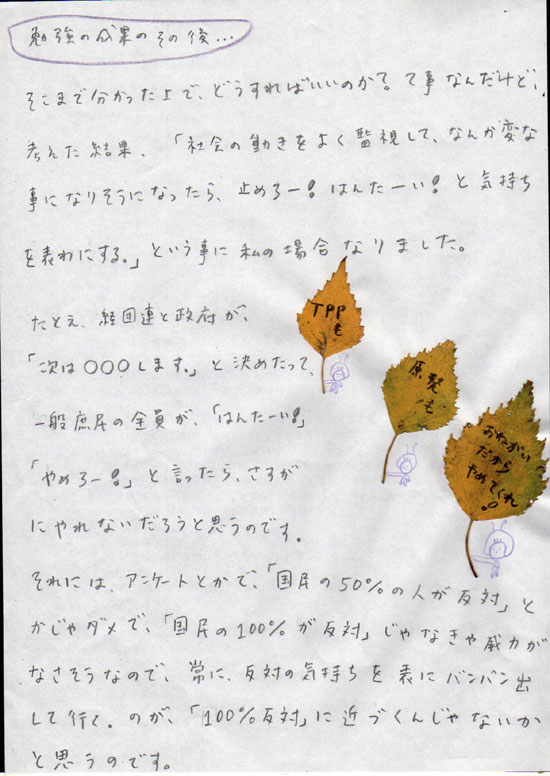 勉強の成果のその後…
そこまで分かった上で、どうすればいいのか?て事なんだけど、
考えた結果、「社会の動きをよく監視して、なんか変な
事になりそうになったら、止めろー!はんたーい!と気持ち
を表わにする。」という事に私の場合なりました。
たとえ、経団連と政府が、
「次は〇〇〇します。」と決めたって、
一般庶民の全員が、「はんたーい!」
「やめろー!」と言ったら、さすが
にやれないだろうと思うのです。
TPPも
原発も
おねがい
だから
やめてくれ。。
それには、アンケートとかで、「国民の50%の人が反対」と
かじゃダメで、「国民の100%が反対」じゃなきゃ威力が
なさそうなので、常に、反対の気持ちを表にバンバン出
して行く。のが、「100%反対」に近づくんじゃないか
と思うのです。